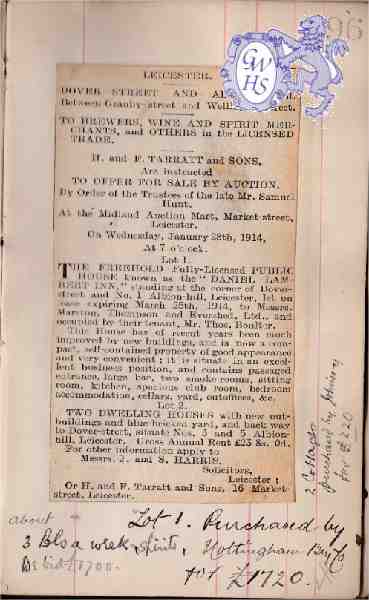 96
GWHS
LEICESTER.
DOVER STREET AND
Between Granby-street and
TO BREWERS, WINE AND SPIRIT MER-
CHANTS, and OTHERS in the LICENSED
TRADE.
H. and F. TARRATT and SONS,
Are instructed
TO OFFER FOR SALE BY AUCTION,
By Order of the Trustees of the late Mr. Samuel
Hunt,
At the Midland Auction Mart, Market-street,
Leicester,
On Wednesday, January 28th, 1914,
At 7 o'clock.
Lot 1.
THE FREEHOLD Fully-Licensed PUBLIC
HOUSE known as the "DANIEL LAM-
BERT INN," standing at the corner of Dover-
street and No. 1 Albion-hill, Leicester, let on
lease expiring March 25th, 1914, to Messrs.
Marston, Thompson and Evershed, Ltd., and
occupied by their tenant, Mr. Thos. Boulter.
This House has of recent years been much
improved by new buildings, and is now a com-
pact, self-contained property of good appearance
and very convenient; it is situate in an excel-
lent business position, and contains passaged
entrance, large bar, two smoke rooms, sitting
room, kitchen, spacious club room, bedroom
accommodation, cellars, yard, outoffices, &c.
Lot 2.
TWO DWELLING HOUSES with new out-
buildings and blue-bricked yard, and back way
to Dover-street, situate Nos. 3 and 5 Albion-
hill, Leicester. Gross Annual Rent £23 8s. 0d.
For other information apply to
Messrs. J. and S. HARRIS,
Solicitors,
Leicester;
Or H. and F. Tarratt and Sons, 16 Market-
street, Leicester.
2 Cottages
purchased by
for £220
about
3 Bls a week, spirits,
£1700.
Lot 1. Purchased by
Nottingham Bry Co
for £1720.